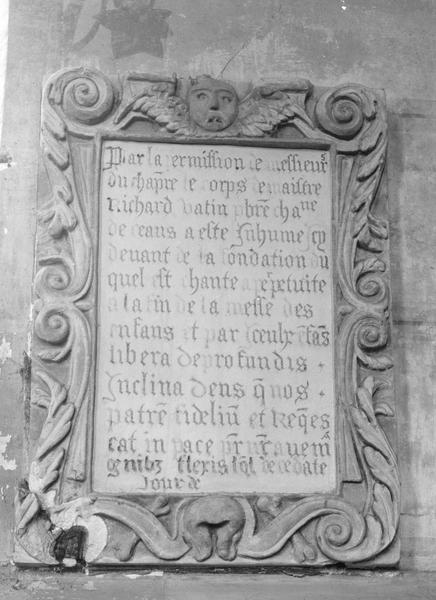 Par la permission de messieurs
du chap̃re le corps de maistre
Richard vatin pb̃re chane
de ceans a este Inhume icy
deuant de la fõndation du
quel est chante a perpetuite
a la fin de la messe des
enfans et par iceulx enfãs
libera de profundis .
Inclina deus q̃ nos .
patrẽ fidelium et Reqes
cat in pace pr̃ nr̃ aue mͣ
genibz flexis le
Jour de